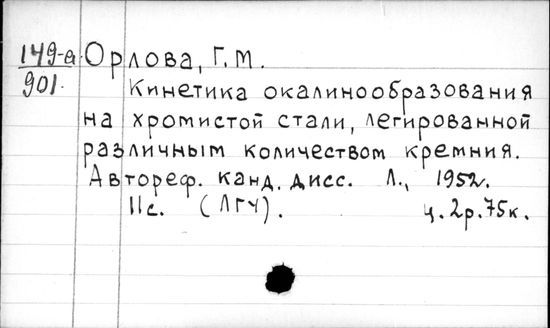 149-а Орлова, Г.М.
901.
Кинетика окалинообразования
на хромистой стали, легированной
различным количеством кремния.
Автореф. канд. дисс. Л., 1952.
11с. (ЛГУ). ц. 2р.75к.